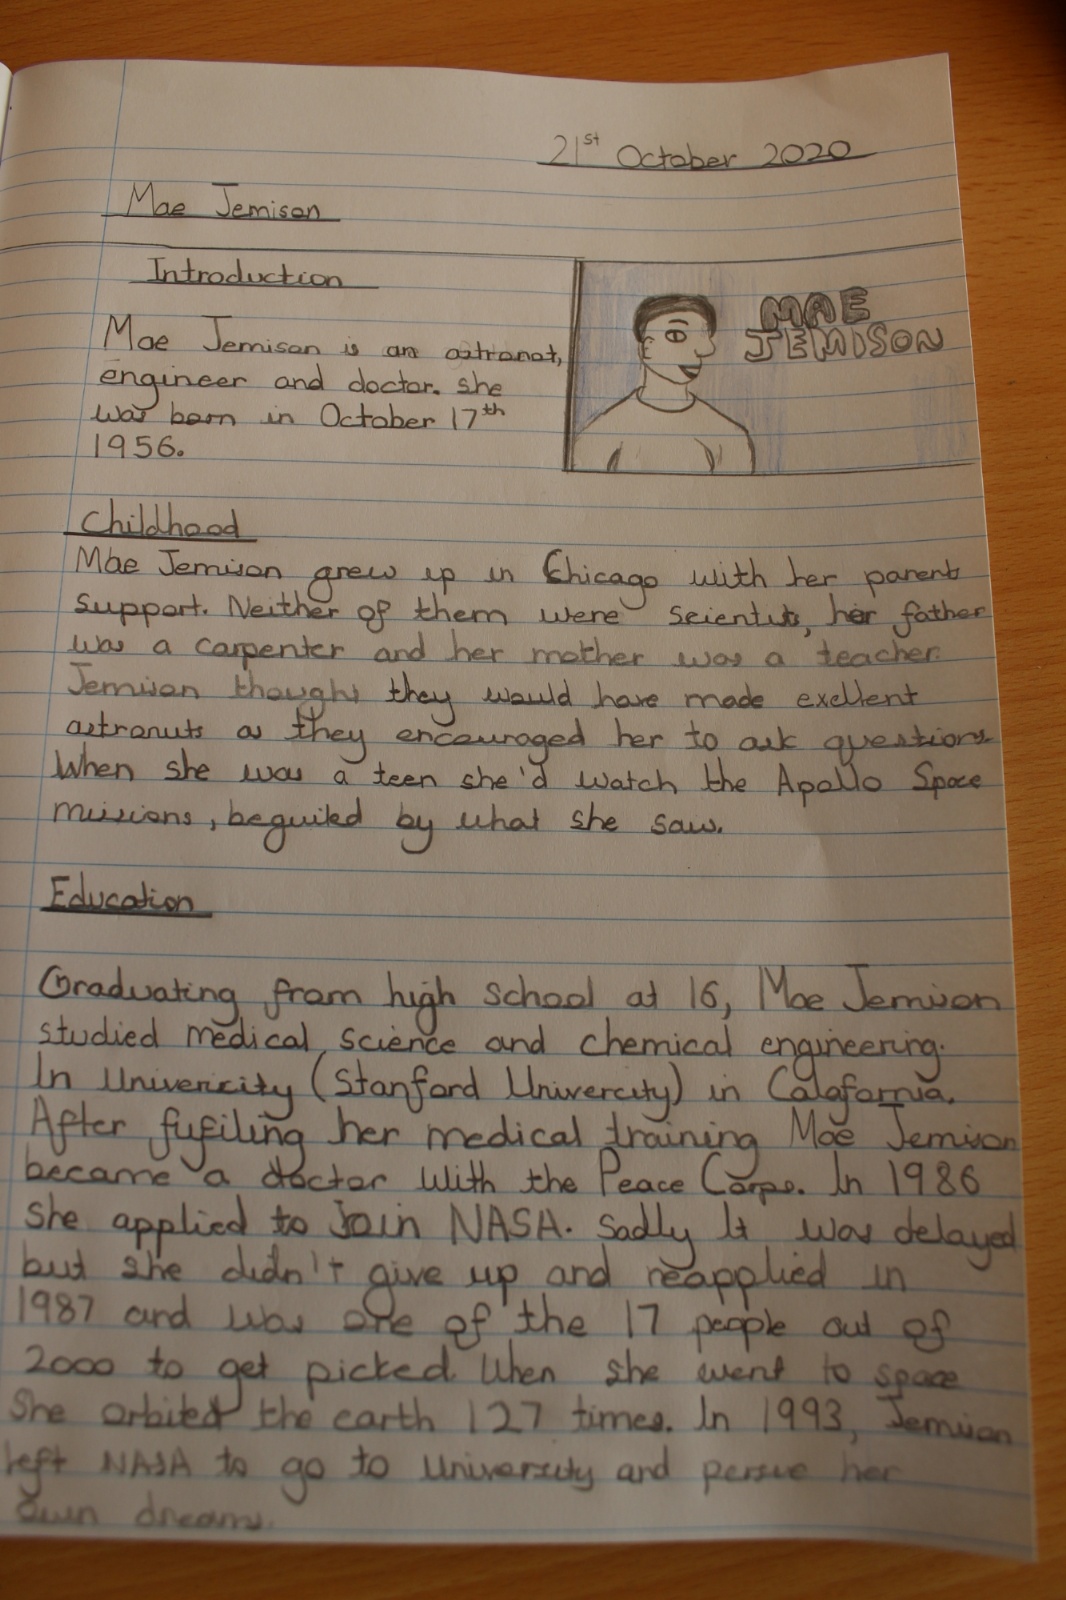 21st October 2020
Mae Jemison
Introduction
MAE
JEMISON
Mae Jemison is an astranat,
engineer and doctor. she
was born in October 17th
1956.
Childhood
Mae Jemison grew up in Chicago with her parents
support. Neither of them were scientits, her father
was a carpenter and her mother was a teacher.
Jemison thought they would have made exellent
astranuts as they encouraged her to ask questions.
When she was a teen she'd watch the Apollo Space
missions, beguiled by what she saw.
Education
Graduating from high school at 16, Mae Jemison
studied medical science and chemical engineering.
In Univericity (Stanford Univercity) in Calafornia.
After fufiling her medical training Mae Jemison
became a doctor with the Peace Corps. In 1986
she applied to Join NASA. Sadly It was delayed
but she didn't give up and reapplied in
1987 and was one of the 17 people out of
2000 to get picked. When she went to space
She orbited the earth 127 times. In 1993, Jemison
left NASA to go to University and persue her
own dreams.